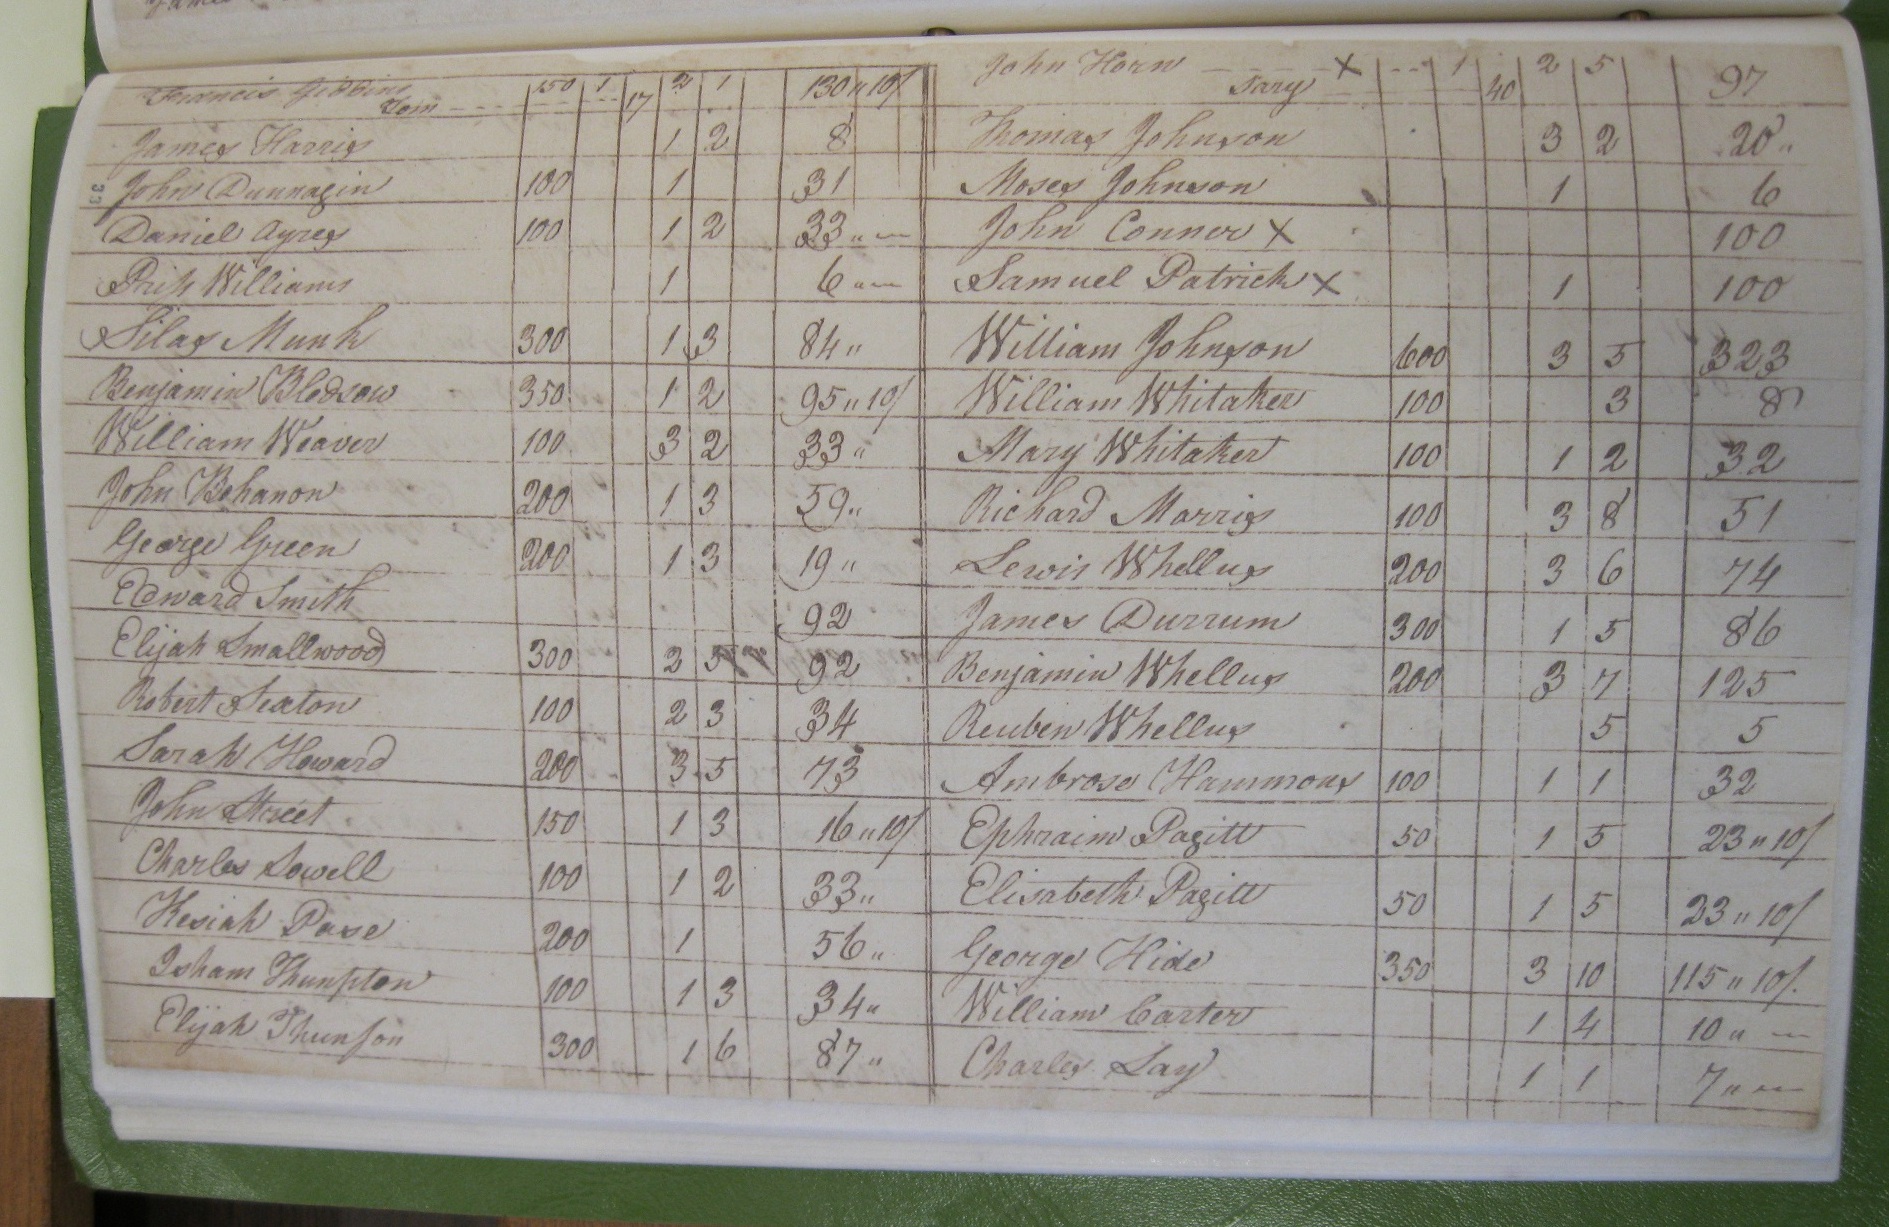 Francis Gibbins 150 1 2 1 130 " 10/
Tom 17
James Harris 1 2 8
John Dunnagin 100 1 31
Daniel Ayres 100 1 2 33 "
Williams 1 6 "
Silas Munk 300 1 3 84 "
Benjamin Bledsow 350 1 2 95 " 10/
William Weaver 100 3 2 33 "
John Bohanon 200 1 3 59 "
George Green 200 1 3 19 "
Edward Smith 92
Elijah Smallwood 300 2 5 92
Robert Seaton 100 2 3 34
Sarah Howard 200 3 5 73
John Street 150 1 3 16 " 10/
Charles Sowell 100 1 2 33 "
Kesiah Pase 200 1 56 "
Isham 100 1 3 34 "
Elijah 300 1 6 87 "
33
John Horn X 1 2 5 97
Sary 40
Thomas Johnson 3 2 20 "
Moses Johnson 1 6
John Conner X 100
Samuel Patrick X 1 100
William Johnson 600 3 5 323
William Whitaker 100 3 8
Mary Whitaker 100 1 2 32
Richard Morris 100 3 8 51
Lewis Whellus 200 3 6 74
James Durrum 300 1 5 86
Benjamin Whellus 200 3 7 125
Reuben Whellus 5 5
Ambrose Hammons 100 1 1 32
Ephraim Pagitt 50 1 5 23 " 10/
Elisabeth Pagitt 50 1 5 23 " 10/
George Hide 350 3 10 115 " 10/.
William Carter 1 4 10 "
Charles Lay 1 1 7 "